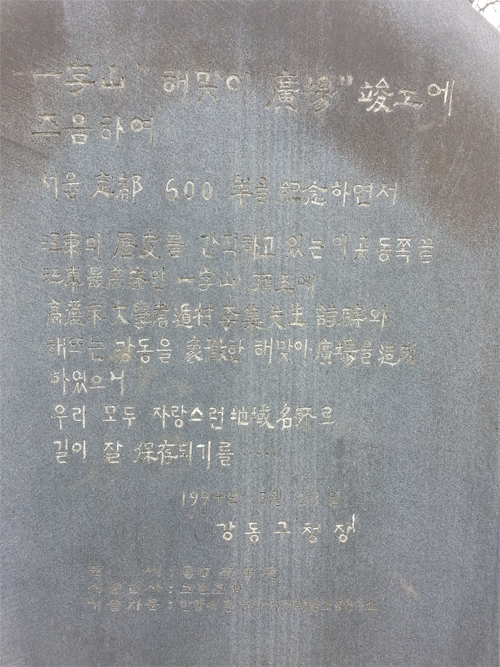 一字山 "해맞이 廣場" 竣工에
즈음하여
서울 定都 600 年을 紀念하면서
江東의 歷史를 간직하고 있는 이곳 동쪽 끝
江東最高峯인 一字山 頂上에
高麗末 大學者 遁村 李集先生 詩碑와
해뜨는 강동을 象徵한 해맞이 廣場을 造成
하였으니
우리 모두 자랑스런 地域名所로
길이 잘 保存되기를 ....
1994년 월 일
강동구청장